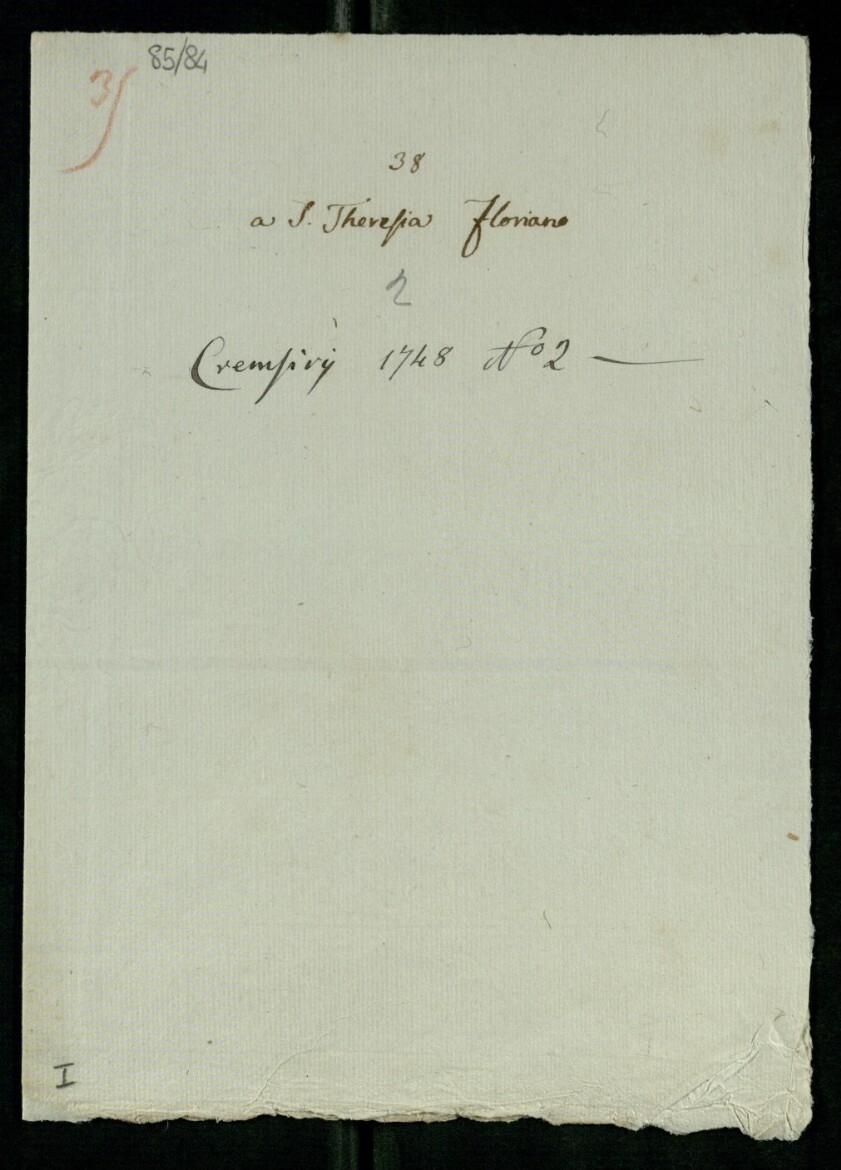 85/84
3
38
a S. Theresia Floriano
2
Cremsirij 1748 No 2 —
I